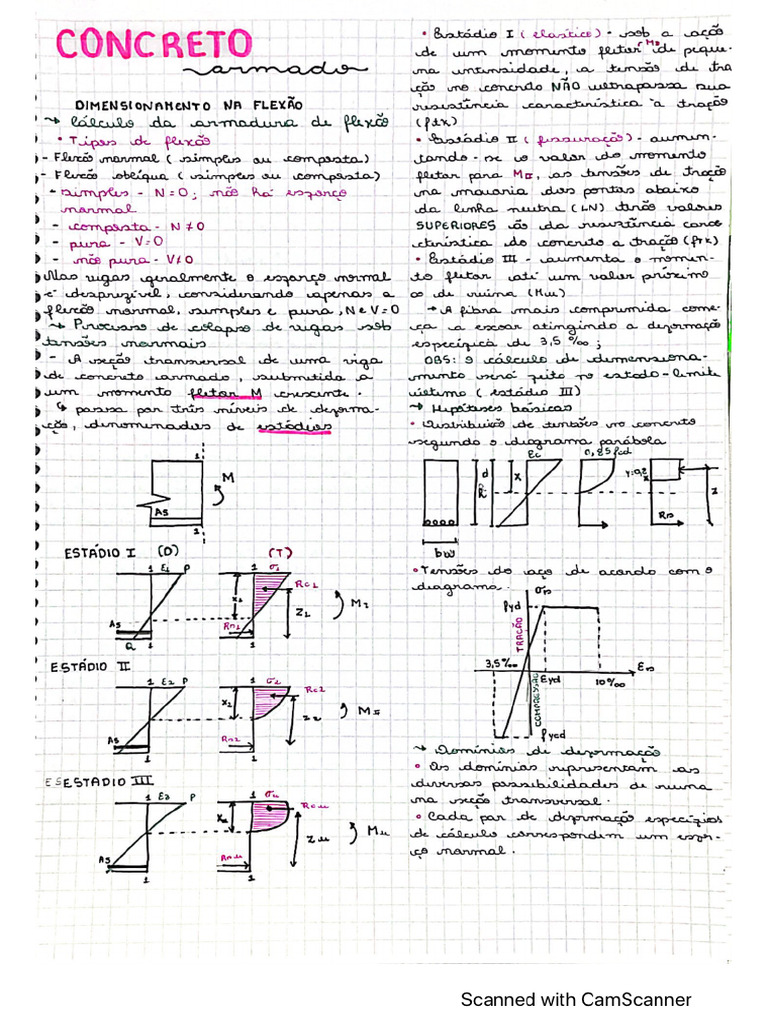 CONCRETO
armado
DIMENSIONAMENTO NA FLEXÃO
→ Cálculo da armadura de flexão
• Tipos de flexão
- Flexão normal (simples ou composta)
- Flexão oblíqua (simples ou composta)
- simples - N=0; não há esforço
normal
- composta - N≠0
- pura - V=0
- não pura - V≠0
Nas vigas geralmente o esforço normal
é desprezível, considerando apenas a
flexão normal, simples e pura, N e V=0
→ Processo de colapso de vigas sob
tensões normais
- A seção transversal de uma viga
de concreto armado, submetida a
um momento fletor M crescente.
↳ passa por três níveis de deforma-
ção, denominados de estádios
1
M
As
1
ESTÁDIO I (D) (T)
1 ε1 P 1 σ1
Rc1
x1
Z1
M1
As
Rs1
a 1 1
ESTÁDIO II
1 ε2 P 1 σ2
Rc2
x2
Z2
MII
As
Rs2
1 1
ESESTADIO III
1 ε3 P 1 σu
Rcu
xu
Zu
Mu
As
Rsu
1 1
• Estádio I (elástico) - sob a ação
de um momento fletor MI de peque-
na intensidade, a tensão de tra
ção no concreto NÃO ultrapassa sua
resistência característica à tração
(ftk)
• Estádio II (fissuração) - aumen-
tando-se o valor do momento
fletor para MII, as tensões de tração
na maioria dos pontos abaixo
da linha neutra (LN) terão valores
SUPERIORES ao da resistência cara
cterística do concreto a tração (ftk)
• Estádio III - aumenta o momen-
to fletor até um valor próximo
ao de ruína (Mu)
→ A fibra mais comprimida come-
ça a escoar atingindo a deformação
específica de 3,5 ‰;
OBS: o cálculo de dimensiona-
mento será feito no estado-limite
último (estádio III)
→ Hipóteses básicas
• Distribuição de tensões no concreto
segundo o diagrama parábola
εc 0,85fcd
d x y=0,8
x
z
h
Rs
bw
• Tensões do aço de acordo com o
diagrama.
σs
fyd
TRAÇÃO
3,5‰ εs
εyd 10‰
COMPRESSÃO
fycd
→ Domínios de deformação
• Os domínios representam as
diversas possibilidades de ruína
na seção transversal.
• Cada par de deformação específicos
de cálculo correspondem um esfor-
ço normal.
Scanned with CamScanner